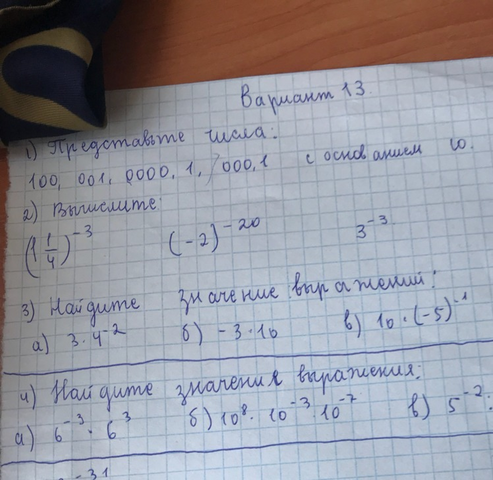 Вариант 13.
1) Представьте числа:
100, 001, 0000, 1, 000,1 с основанием 10.
2) Вычислите:
(1 1/4)⁻³ (-2)⁻²⁰ 3⁻³
3) Найдите значение выражений:
а) 3·4⁻² б) -3·10 в) 10·(-5)⁻¹
4) Найдите значения выражения:
а) 6⁻³·6³ б) 10⁸·10⁻³·10⁻⁷ в) 5⁻²: